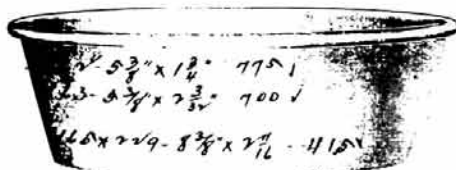 2- 5 3/8" x 1 3/4" 775 ✓
3- 5 3/8" x 2 3/32" 700 ✓
165 x 229 - 8 3/8" x 2 11/16 - 415 ✓